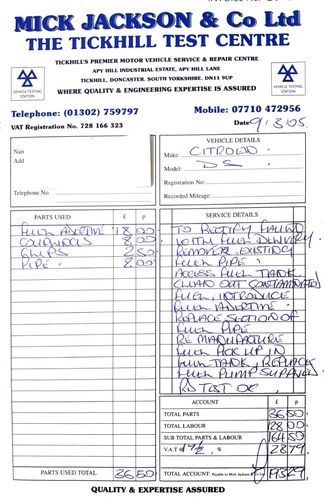 MICK JACKSON & Co Ltd
THE TICKHILL TEST CENTRE
TICKHILL'S PREMIER MOTOR VEHICLE SERVICE & REPAIR CENTRE
APY HILL INDUSTRIAL ESTATE, APY HILL LANE
TICKHILL, DONCASTER, SOUTH YORKSHIRE. DN11 9UP
WHERE QUALITY & ENGINEERING EXPERTISE IS ASSURED
VEHICLE TESTING STATION
VEHICLE TESTING STATION
Telephone: (01302) 759797
Mobile: 07710 472956
VAT Registration No. 728 166 323
Date 9.3.05.
Nam
Add
Telephone No.
VEHICLE DETAILS
Make: CITROEN
Model: DS
Registration No:
Recorded Mileage:
PARTS USED £ p
FUEL ADDITIVE 18.00
COUPLINGS 8.00
CLIPS 2.50
PIPE 8.00
PARTS USED TOTAL 36.50
SERVICE DETAILS
TO RECTIFY FAULT
WITH FUEL DELIVERY.
REMOVE EXISTING
FUEL PIPE.
ACCESS FUEL TANK
CLEAN OUT CONTAMINATED
FUEL, INTRODUCE
FUEL ADDITIVE.
REPLACE SECTION OF
FUEL PIPE
REMANUFACTURE
FUEL PICK UP IN
FUEL TANK, REPLACE
FUEL PUMP SUPPLIED
RD TEST OK
ACCOUNT £ p
TOTAL PARTS 36.50
TOTAL LABOUR 128.00
SUB TOTAL PARTS & LABOUR 164.50
V.A.T @ 17½ % 28.79
TOTAL ACCOUNT: Payable to Mick Jackson & Co Ltd 193.29
QUALITY & EXPERTISE ASSURED